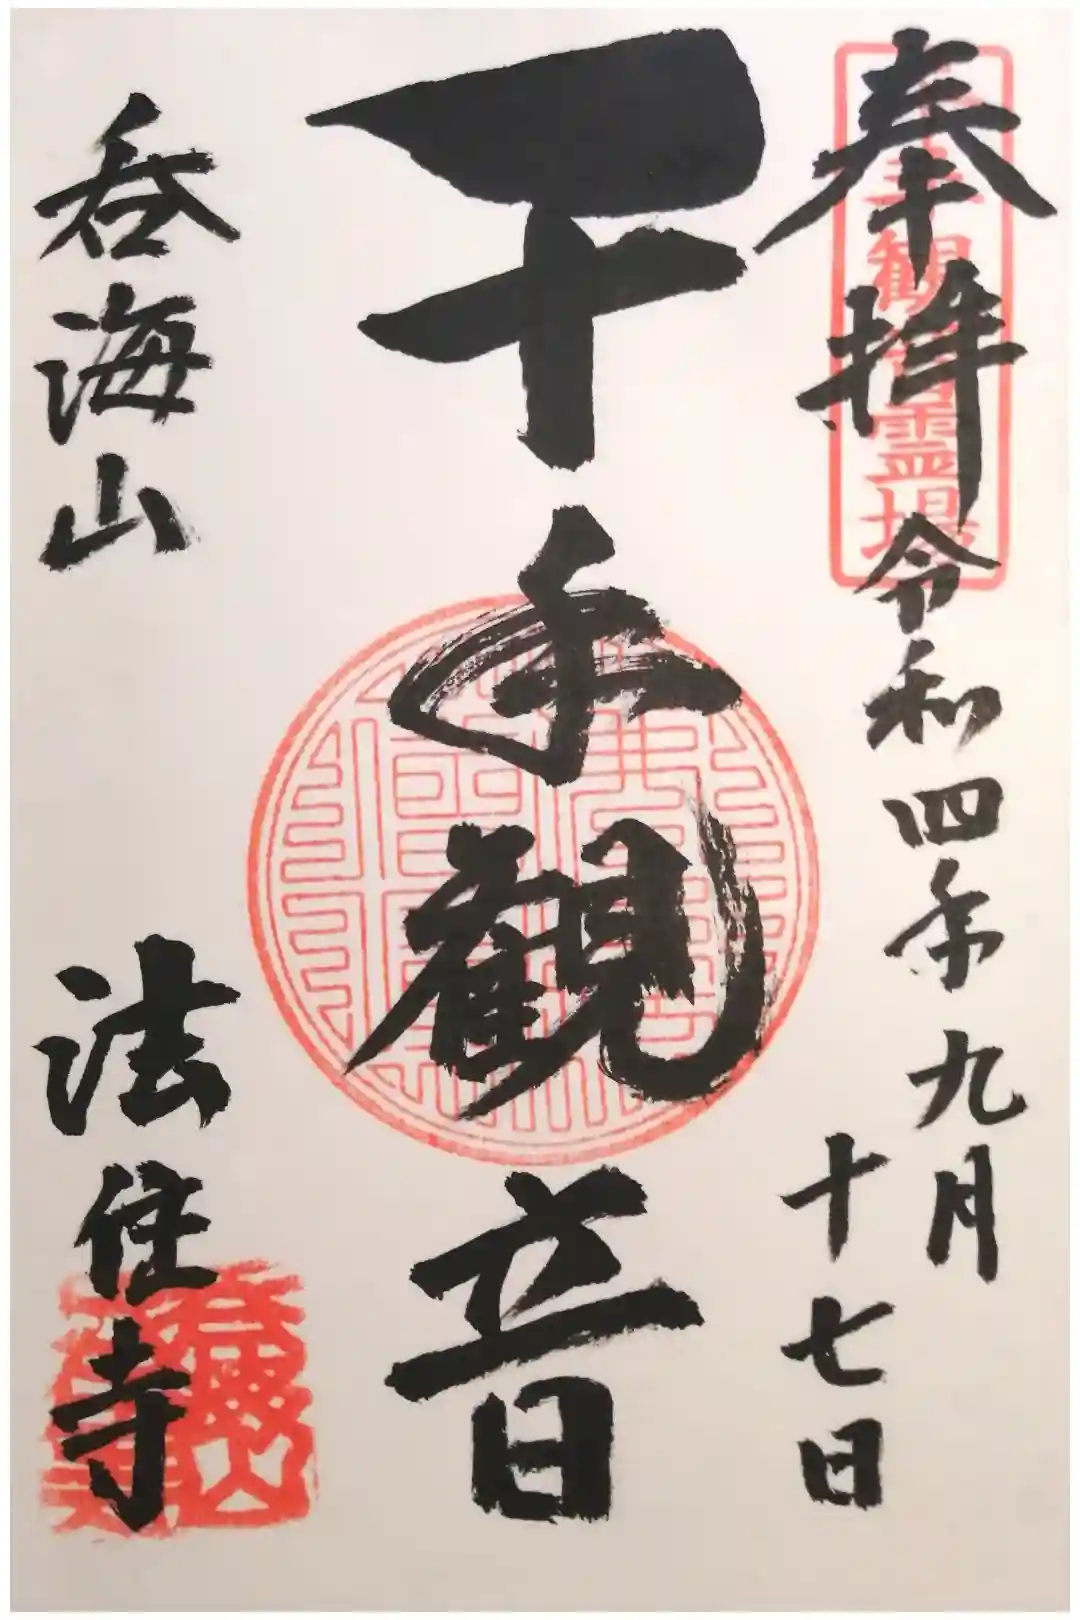 奉拝
令和四年九月
十七日
千手観音
呑海山
法住寺
観音霊場
呑海山